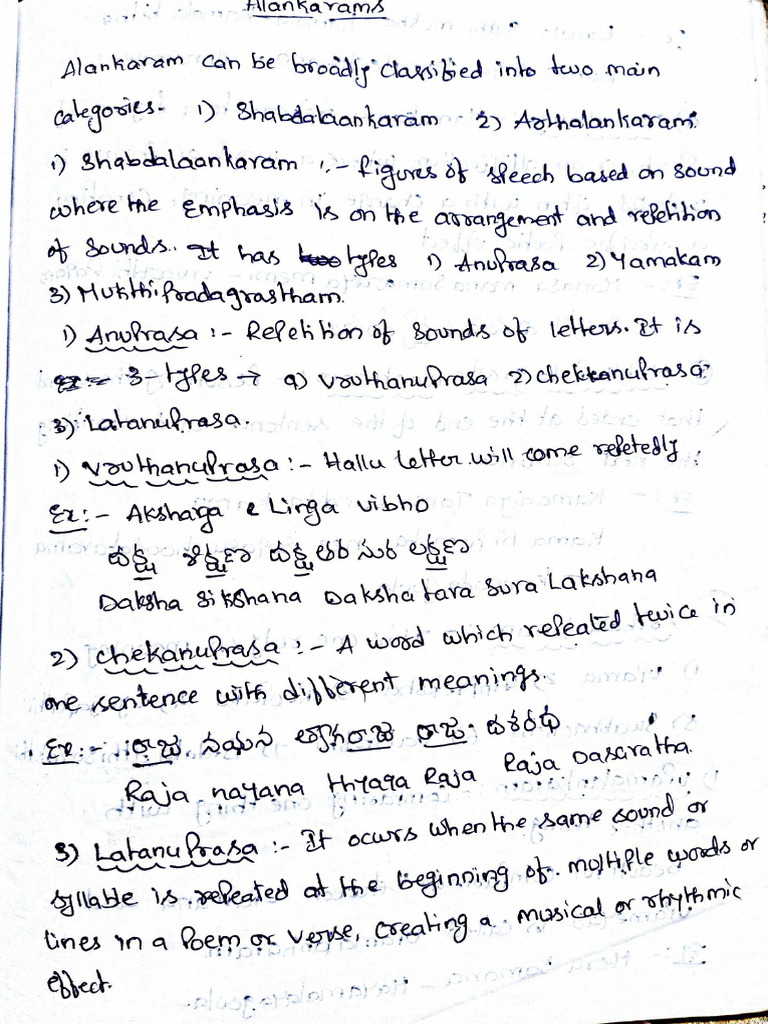 Alankarams
Alankaram can be broadly classified into two main
categories- 1) Shabdalaankaram 2) Arthalankaram.
1) Shabdalaankaram :- figures of speech based on sound
where the emphasis is on the arrangement and repetition
of sounds. It has two types 1) Anuprasa 2) Yamakam
3) Mukthipradagrastham.
1) Anuprasa :- Repetition of sounds of letters. It is
Ex:- 3-types → a) Vruthanuprasa 2) chekkanuprasa
3) Latanuprasa.
1) Vruthanuprasa :- Hallu letter will come repetedly.
Ex:- Akshara & Linga vibho
దక్ష శిక్షణా దక్ష తర సుర లక్షణా
Daksha Sikshana Daksha tara Sura Lakshana
2) Chekanuprasa :- A word which repeated twice in
one sentence with different meanings.
Ex:- రాజ నయన త్యాగరాజ రాజ దశరథ
Raja nayana thyaga Raja Raja Dasaratha.
3) Latanuprasa :- It ocurs when the same sound or
syllable is repeated at the beginning of multiple words or
lines in a poem or verse, creating a musical or rhythmic
effect.